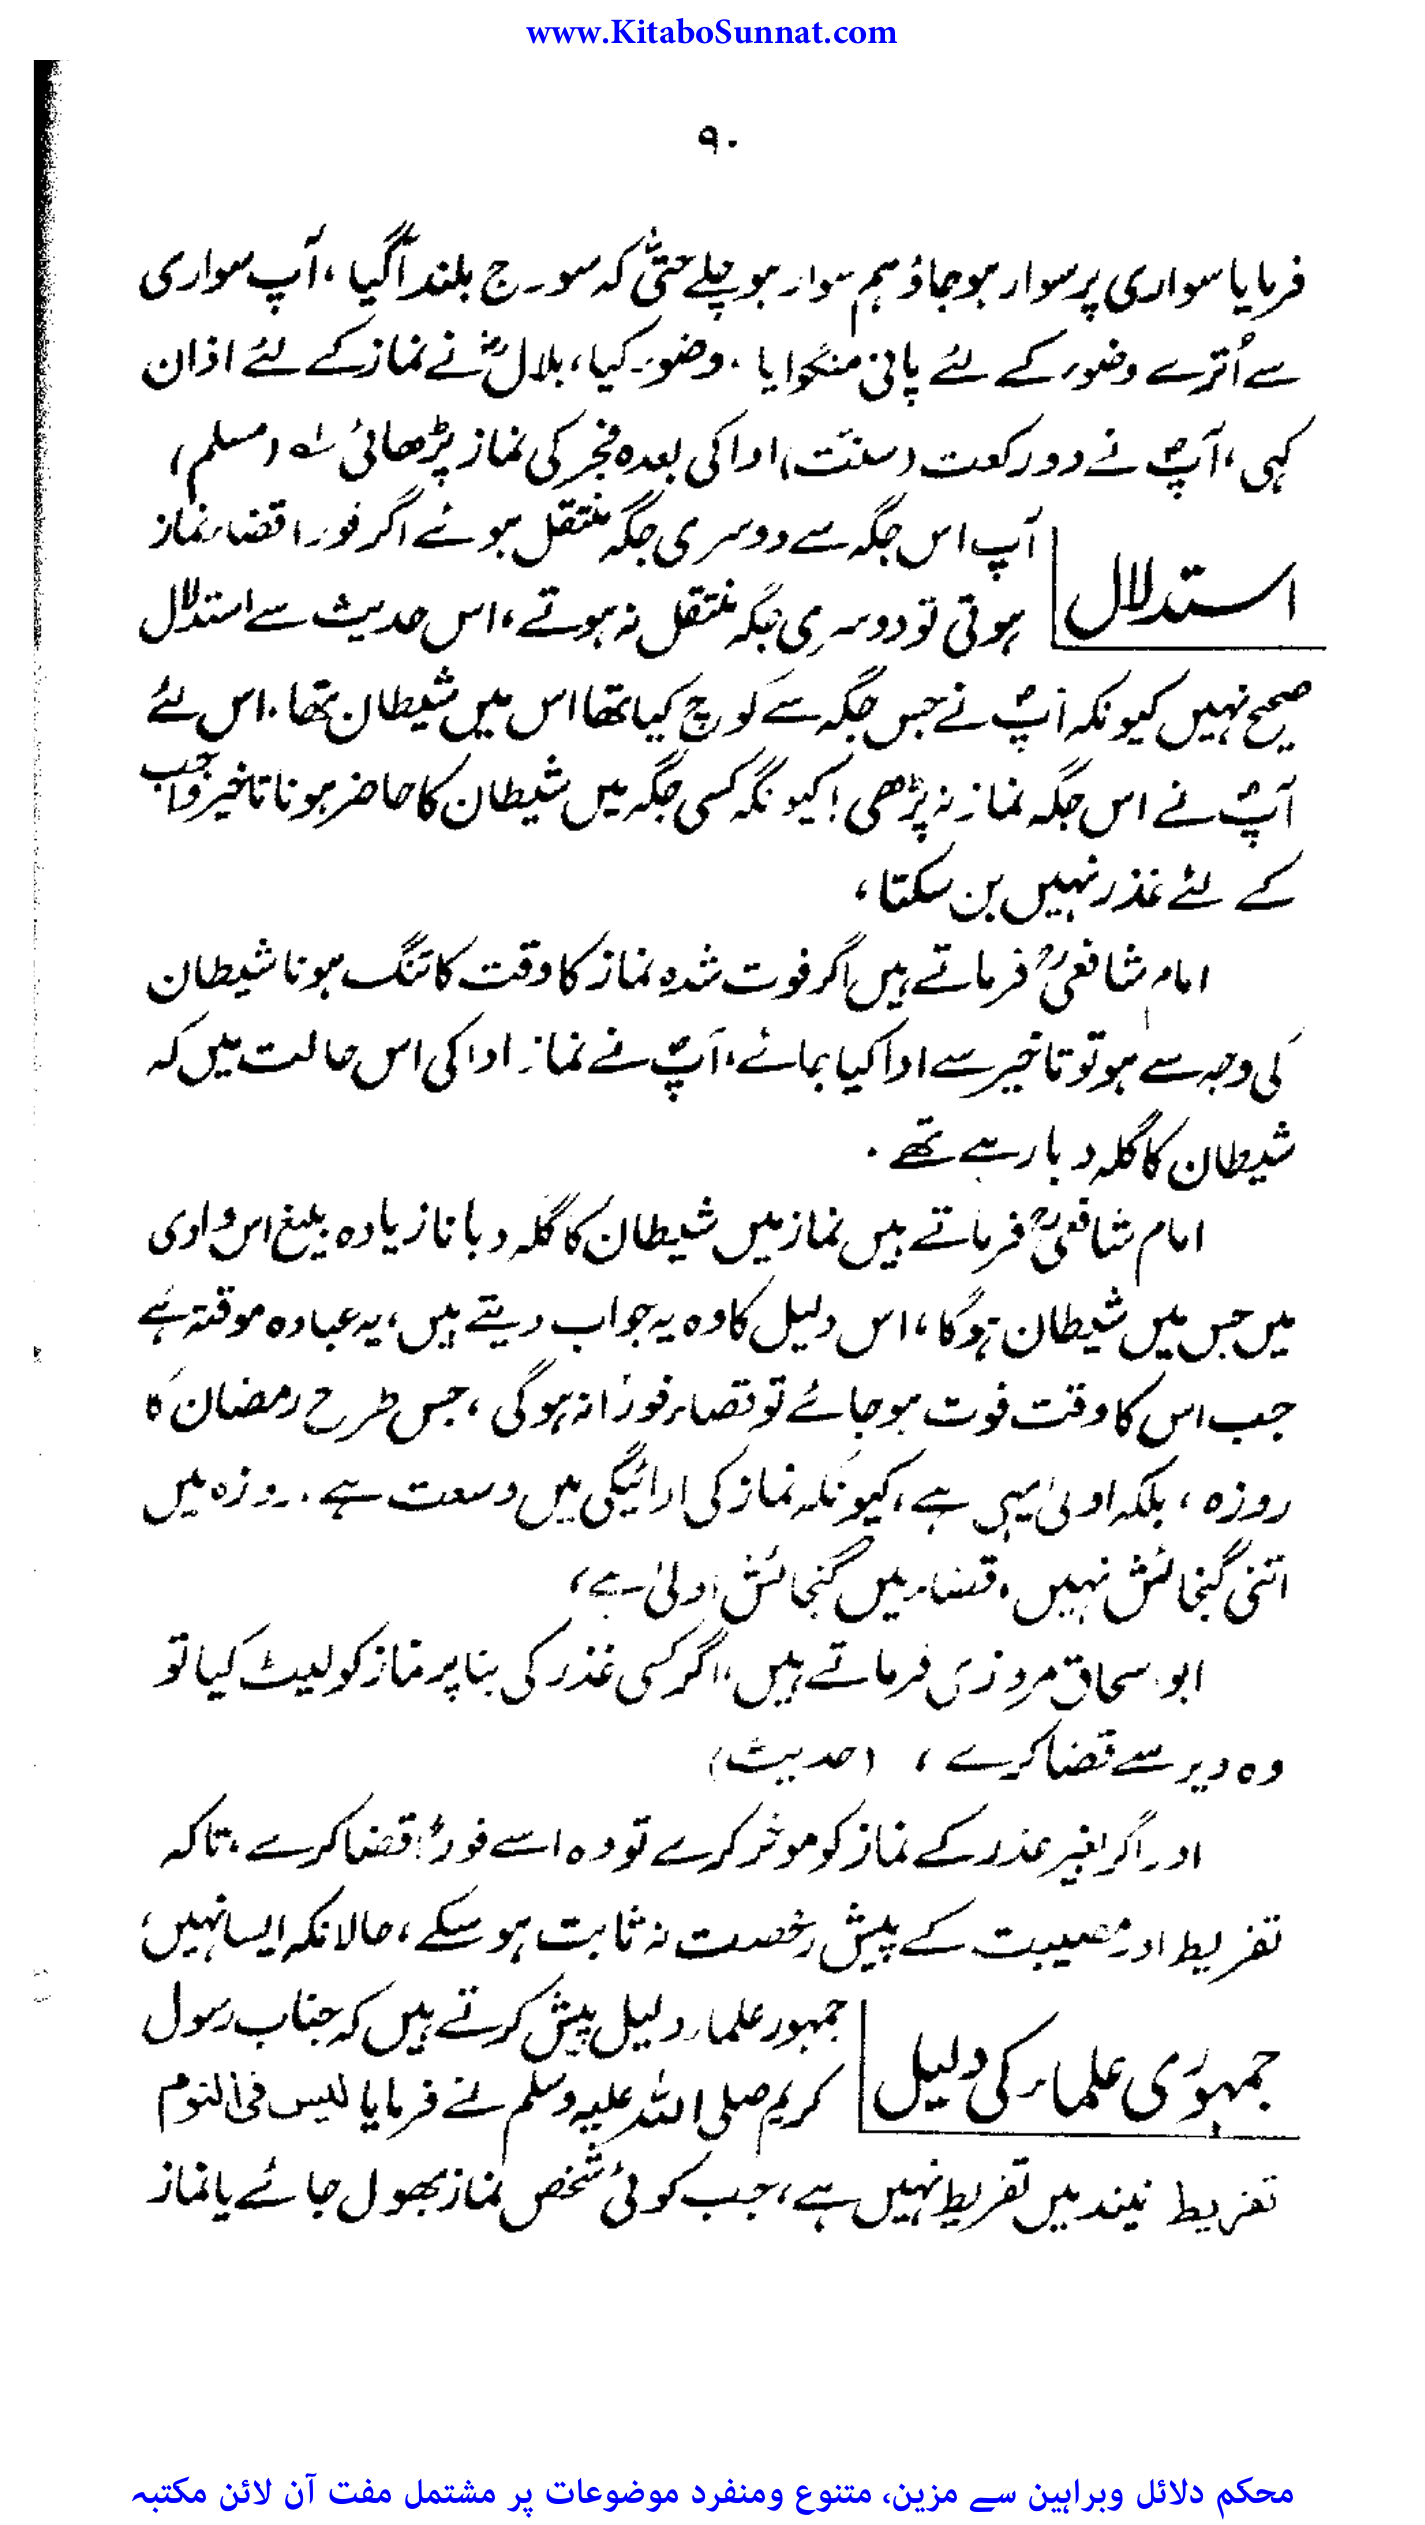 www.KitaboSunnat.com
۹۰
فرمایا سواری پر سوار ہوجاؤ ہم سوار ہو چلے حتیّٰ کہ سورج بلند آگیا ، آپ سواری
سے اُترے وضوء کے لئے پانی منگوایا ۔ وضوء کیا ، بلال رضؓ نے نماز کے لئے اذان
کہی ، آپؐ نے دو رکعت (سنّت) ادا کی بعدہ فجر کی نماز پڑھائی لہ (مسلم)
استدلال
آپ اس جگہ سے دوسری جگہ منتقل ہوئے اگر فورا قضاء نماز
ہوتی تو دوسری جگہ منتقل نہ ہوتے ، اس حدیث سے استدلال
صحیح نہیں کیونکہ آپؐ نے جس جگہ سے کوچ کیا تھا اس میں شیطان تھا ۔ اس لئے
آپؐ نے اس جگہ نماز نہ پڑھی ! کیونکہ کسی جگہ میں شیطان کا حاضر ہونا تاخیر واجب
کے لئے عذر نہیں بن سکتا ،
امام شافعیؒ فرماتے ہیں اگر فوت شدہ نماز کا وقت کا تنگ ہونا شیطان
کی وجہ سے ہو تو تاخیر سے ادا کیا جائے ، آپؐ نے نماز ادا کی اس حالت میں کہ
شیطان کا گلہ دبا رہے تھے ۔
امام شافعیؒ فرماتے ہیں نماز میں شیطان کا گلہ دبانا زیادہ بلیغ اس وادی
میں جس میں شیطان ہوگا ، اس دلیل کا وہ یہ جواب دیتے ہیں ، یہ عبادہ موقتۃ ہے
جب اس کا وقت فوت ہوجائے تو قضاء فورًا نہ ہوگی ، جس طرح رمضان کا
روزہ ، بلکہ اولیٰ یہی ہے ، کیونکہ نماز کی ادائیگی میں وسعت ہے ۔ روزہ میں
اتنی گنجائش نہیں ، قضاء میں گنجائش اولیٰ ہے ،
ابو سحاق مروزی فرماتے ہیں ، اگر کسی عذر کی بنا پر نماز کو لیٹ کیا تو
وہ دیر سے قضا کرے ، (حدیث)
اور اگر بغیر عذر کے نماز کو موخر کرے تو وہ اسے فورًا قضا کرے ، تاکہ
تفریط اور مصیبت کے پیش رخصت نہ ثابت ہو سکے ، حالانکہ ایسا نہیں ،
جمہوری علماء کی دلیل
جمہور علماء دلیل پیش کرتے ہیں کہ جناب رسول
کریم صلی اللہ علیہ وسلم نے فرمایا لیس فی النوم
تفریط نیند میں تفریط نہیں ہے ، جب کوئی شخص نماز بھول جائے یا نماز
محکم دلائل وبراہین سے مزین، متنوع ومنفرد موضوعات پر مشتمل مفت آن لائن مکتبہ